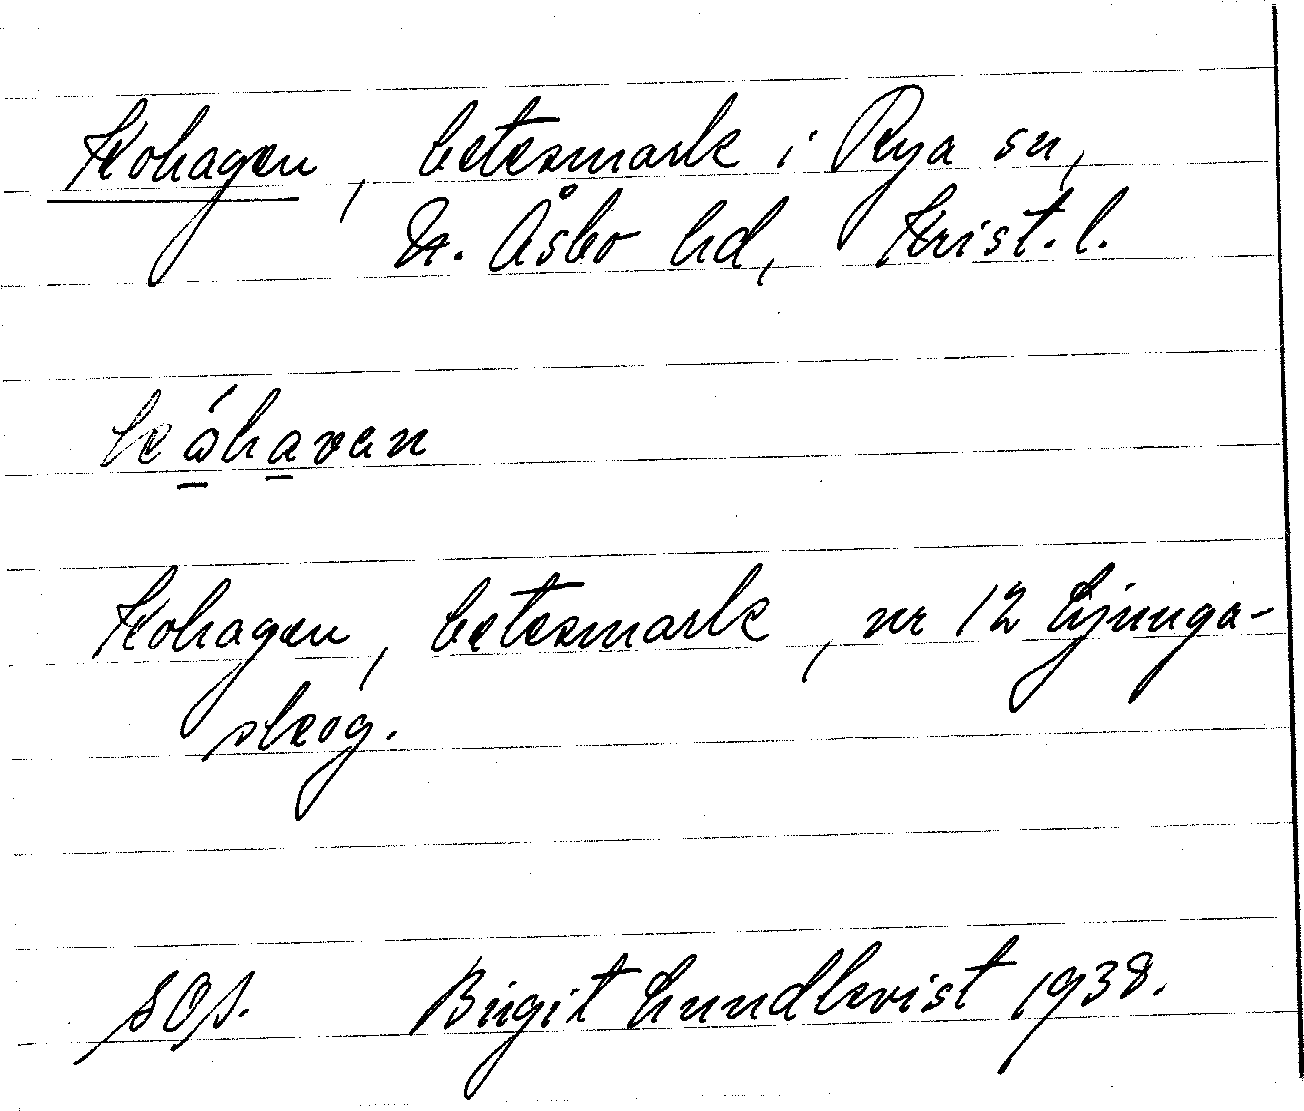 Kohagen, betesmark i Rya sn,
N. Åsbo hd, Krist. l.
kǻhavan
Kohagen, betesmark, nr 12 Ljunga-
skog.
SOS. Birgit Lundkvist 1938.